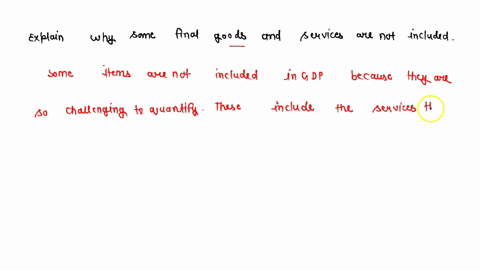 Explain why some final goods and services are not included.
some items are not included in GDP because they are
so challenging to quantify. These include the services t